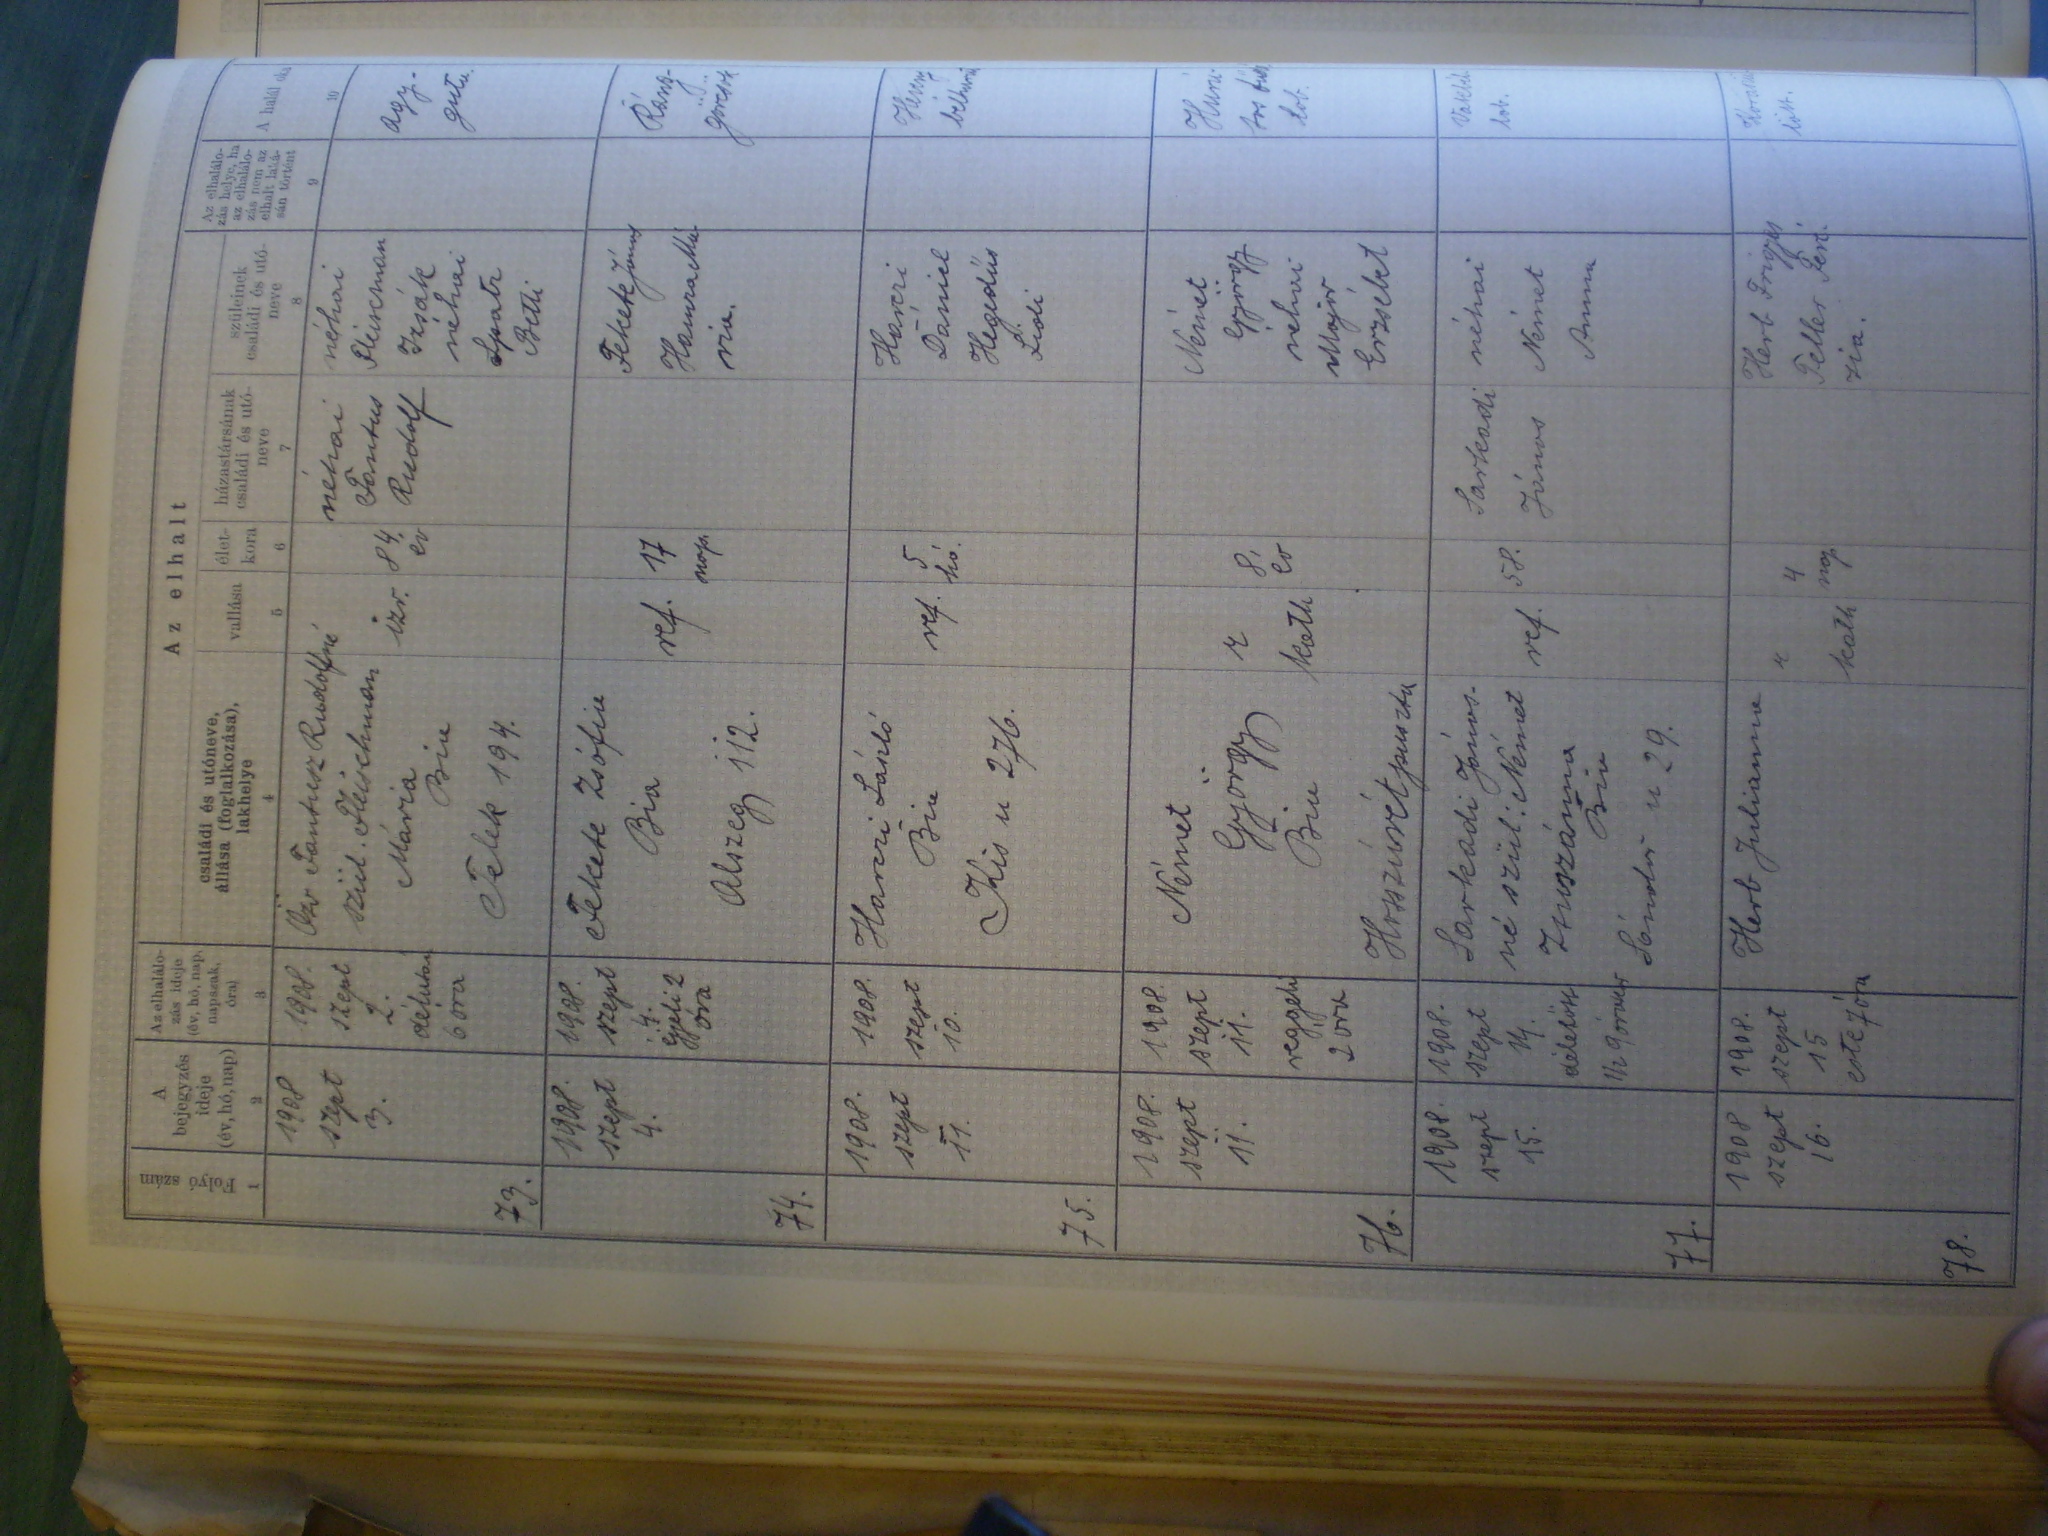 Az elhalt
Folyó szám
A bejegyzés ideje (év, hó, nap)
Az elhalálo-
zás ideje
(év, hó, nap, napszak, óra)
családi és utóneve,
állása (foglalkozása),
lakhelye
vallása
élet-
kora
házastársának
családi és utó-
neve
szüleinek
családi és utó-
neve
Az elhalálo-
zás helye, ha
az elhalálo-
zás nem az
elhalt laká-
sán történt
A halál oka
1
2
3
4
5
6
7
8
9
10
73.
1908
szept
3.
1908.
szept
2.
délután
6 óra
Özv Fantusz Rudolfné
szül. Fleischman
Mária
Bia
Telek 194.
izr.
84.
év
néhai
Fantus
Rudolf
néhai
Fleischman
Izsák
néhai
Spatz
Betti
agy-
guta.
74.
1908.
szept
4.
1908.
szept
4.
éjjeli 2
óra
Fekete Zsófia
Bia
Alszeg 112.
ref.
17
nap.
Fekete János
Hamza Má-
ria.
Ráng-
görcsök
75.
1908.
szept
11.
1908.
szept
10.
Harczi László
Bia
Kis u 276.
ref.
5
hó.
Harczi
Dániel
Hegedüs
Lidi
76.
1908.
szept
11.
1908.
szept
11.
reggeli
2 óra
Német
György
Bia
Hosszúrétpuszta
r
kath
8.
év
Német
György
néhai
Major
Erzsébet
77.
1908.
szept
15.
1908.
szept
14.
délelőtt
1/2 9 órakor
Sarkadi János-
né szül: Német
Zsuszánna
Bia
Sándor u 29.
ref.
58.
Sarkadi
János
néhai
Német
Anna
78.
1908
szept
16.
1908.
szept
15
este 7 óra
Herb Julianna
r
kath
4
nap
Herb Frigyes
Peller Teré-
zia.